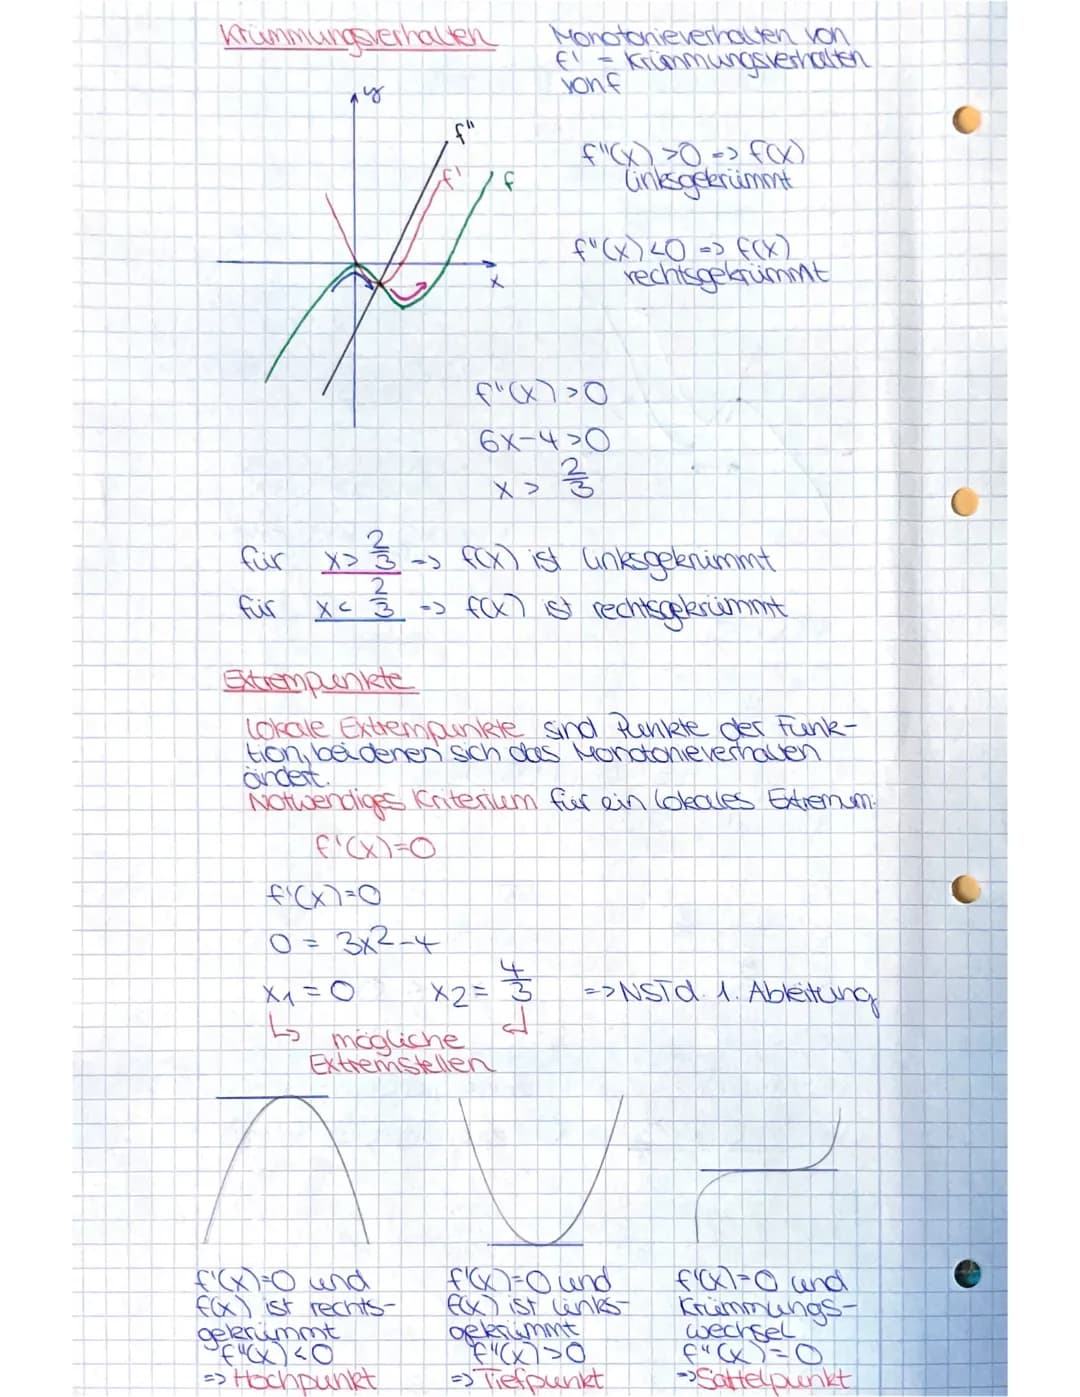 Krümmungsverhalten
Monotonieverhalten von
f' = Krümmungsverhalten
von f
y
f''
f'
f
x
f''(x) > 0 => f(x)
linksgekrümmt
f''(x) < 0 => f(x)
rechtsgekrümmt
f''(x) > 0
6x-4 > 0
x > 2/3
für x > 2/3 => f(x) ist linksgekrümmt
für x < 2/3 => f(x) ist rechtsgekrümmt
Extrempunkte
Lokale Extrempunkte sind Punkte der Funk-
tion, bei denen sich das Monotonieverhalten
ändert.
Notwendiges Kriterium für ein lokales Extremum:
f'(x)=0
f'(x)=0
0 = 3x2-4
x1=0 x2= 4/3 => NST d. 1. Ableitung
↳ mögliche
Extremstellen
f'(x)=0 und
f(x) ist rechts-
gekrümmt
f''(x)<0
=> Hochpunkt
f'(x)=0 und
f(x) ist links-
gekrümmt
f''(x)>0
=> Tiefpunkt
f'(x)=0 und
Krümmungs-
wechsel
f''(x)=0
=> Sattelpunkt